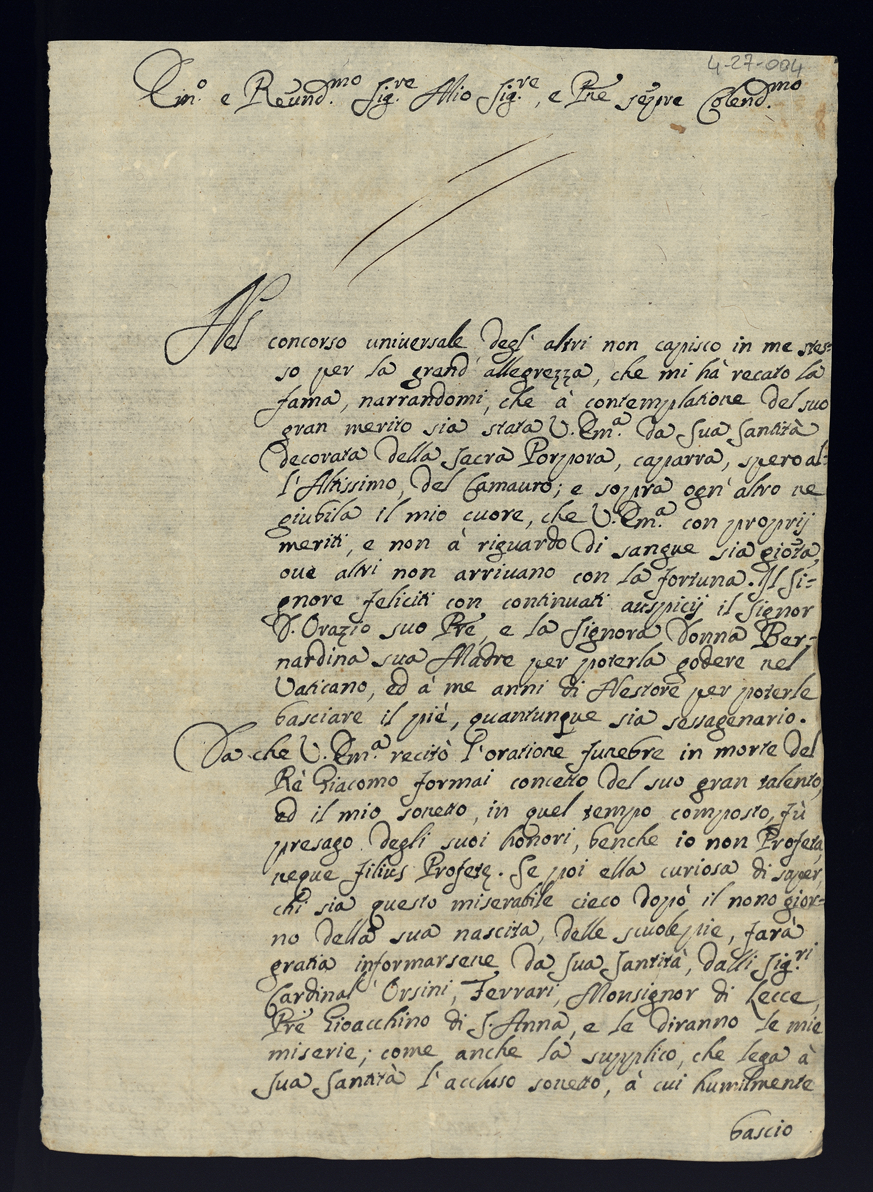 4-27-004
Em.º e Reuend.mo Sig.re Mio Sig.re, e Pñe sempre Colend.mo
Nel concorso uniuersale degl' altri non capisco in me stes=
so per la grand' allegrezza, che mi hà recato la
fama, narrandomi, che à contemplatione del suo
gran merito sia stata V. Em.a da Sua Santità
decorata della Sacra Porpora, caparra, spero al=
l'Altissimo, del Camauro; e sopra ogn' altro ne
giubila il mio cuore, che V. Em.a con proprij
meriti, e non à riguardo di sangue sia giõta,
oue altri non arriuano con la fortuna. Il Si=
gnore feliciti con continuati auspicij il Signor
D. Orazio suo Prẽ, e la Signora Donna Ber=
nardina sua Madre per poterla godere nel
Vaticano, ed à me anni di Nestore per poterle
basciare il piè, quantunque sia sessagenario.
Da che V. Em.a recitò l'oratione funebre in morte del
Rè Giacomo formai concetto del suo gran talento,
ed il mio sonetto, in quel tempo composto, fù
presago degli suoi honori, benche io non Profeta,
neque filius Profetę. Se poi ella curiosa di saper,
chi sia questo miserabile cieco dopò il nono gior=
no della sua nascita, delle scuole pie, farà
gratia informarsene da Sua Santità, dalli Sig.ri
Cardinal' Orsini, Ferrari, Monsignor di Lecce,
Prẽ Gioacchino di S. Anna, e le diranno le mie
miserie; come anche la supplico, che lega à
Sua Santità l'accluso sonetto, à cui humilmente
bascio